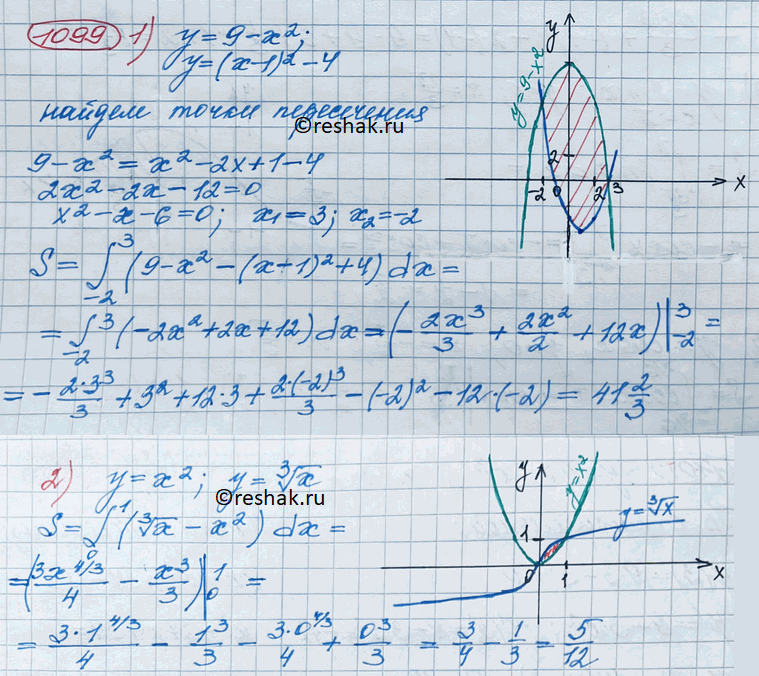 1099 1) y = 9 - x²;
y = (x-1)² - 4
найдем точки пересечения
©reshak.ru
9 - x² = x² - 2x + 1 - 4
2x² - 2x - 12 = 0
x² - x - 6 = 0; x₁ = 3; x₂ = -2
S = ∫₋₂³ (9 - x² - (x+1)² + 4) dx =
= ∫₋₂³ (-2x² + 2x + 12) dx = (- 2x³/3 + 2x²/2 + 12x) |₋₂³ =
= - 2·3³/3 + 3² + 12·3 + 2·(-2)³/3 - (-2)² - 12·(-2) = 41 2/3
y
y = 9 - x²
2
-2 0 2 3 x
2) y = x²; y = ∛x
©reshak.ru
S = ∫₀¹ (∛x - x²) dx =
= (3x^4/3/4 - x³/3) |₀¹ =
= 3·1^4/3/4 - 1³/3 - 3·0^4/3/4 + 0³/3 = 3/4 - 1/3 = 5/12
y
y = x²
y = ∛x
1
0 1 x